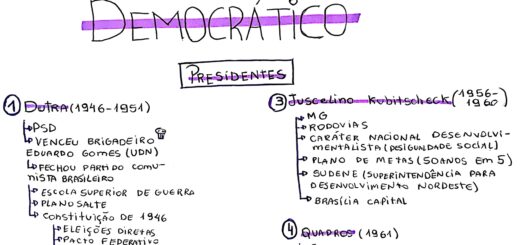 DEMOCRÁTICO
PRESIDENTES
1 DUTRA (1946-1951)
PSD
VENCEU BRIGADEIRO
EDUARDO GOMES (UDN)
FECHOU PARTIDO COMU-
NISTA BRASILEIRO
ESCOLA SUPERIOR DE GUERRA
PLANO SALTE
CONSTITUIÇÃO DE 1946
ELEIÇÕES DIRETAS
PACTO FEDERATIVO
3 JUSCELINO KUBITSCHECK (1956-
1960)
MG
RODOVIAS
CARÁTER NACIONAL DESENVOLVI-
MENTALISTA (DESIGUALDADE SOCIAL)
PLANO DE METAS (50 ANOS EM 5)
SUDENE (SUPERINTENDÊNCIA PARA
DESENVOLVIMENTO NORDESTE)
BRASÍLIA CAPITAL
4 QUADROS (1961)